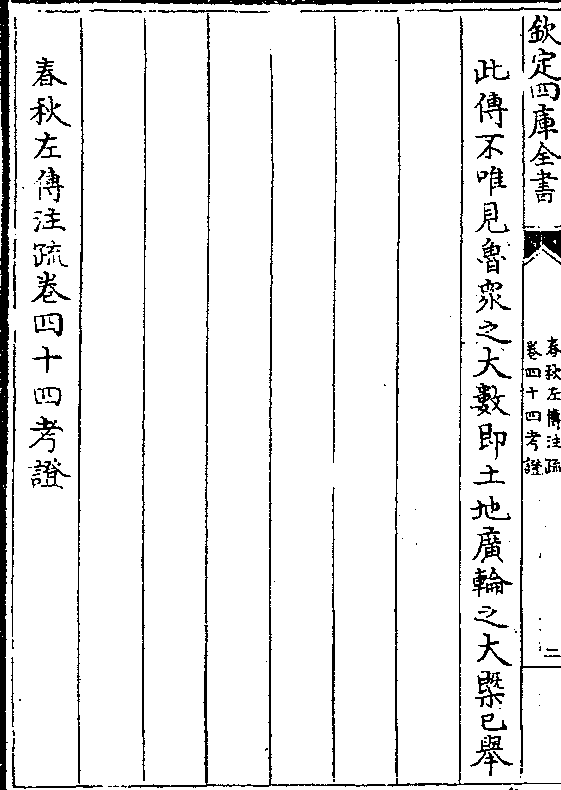 欽定四庫全書
春秋左傳注疏
卷四十四考證
二
此傳不唯見魯衆之大數即土地廣輪之大槩已舉
春秋左傳注疏卷四十四考證